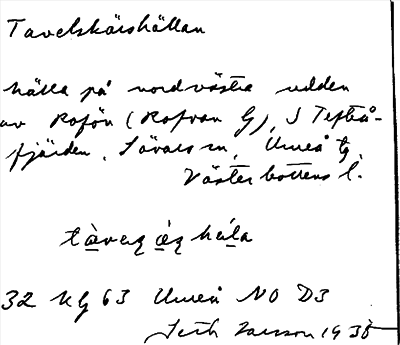 Tavelskärshällan
hälla på nordvästra udden
av Rofön (Rofvan G), I Tefteå-
fjärden, Sävars sn, Umeå tg
Västerbottens l.
32 Kg 63 Umeå NO D3
Larsson 1938